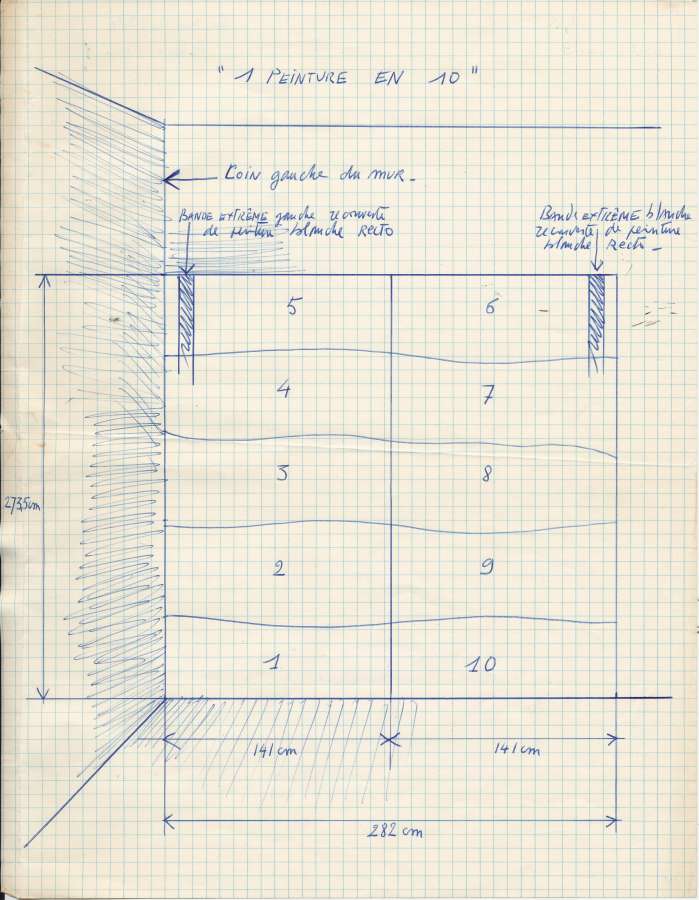 " 1 PEINTURE EN 10 "
Coin gauche du mur -
BANDE EXTRÊME gauche recouverte
de peinture blanche RECTO
Bande EXTRÊME blanche
recouverte de peinture
blanche Recto -
5 6
4 7
273,5cm
3 8
2 9
1 10
141 cm 141 cm
282 cm